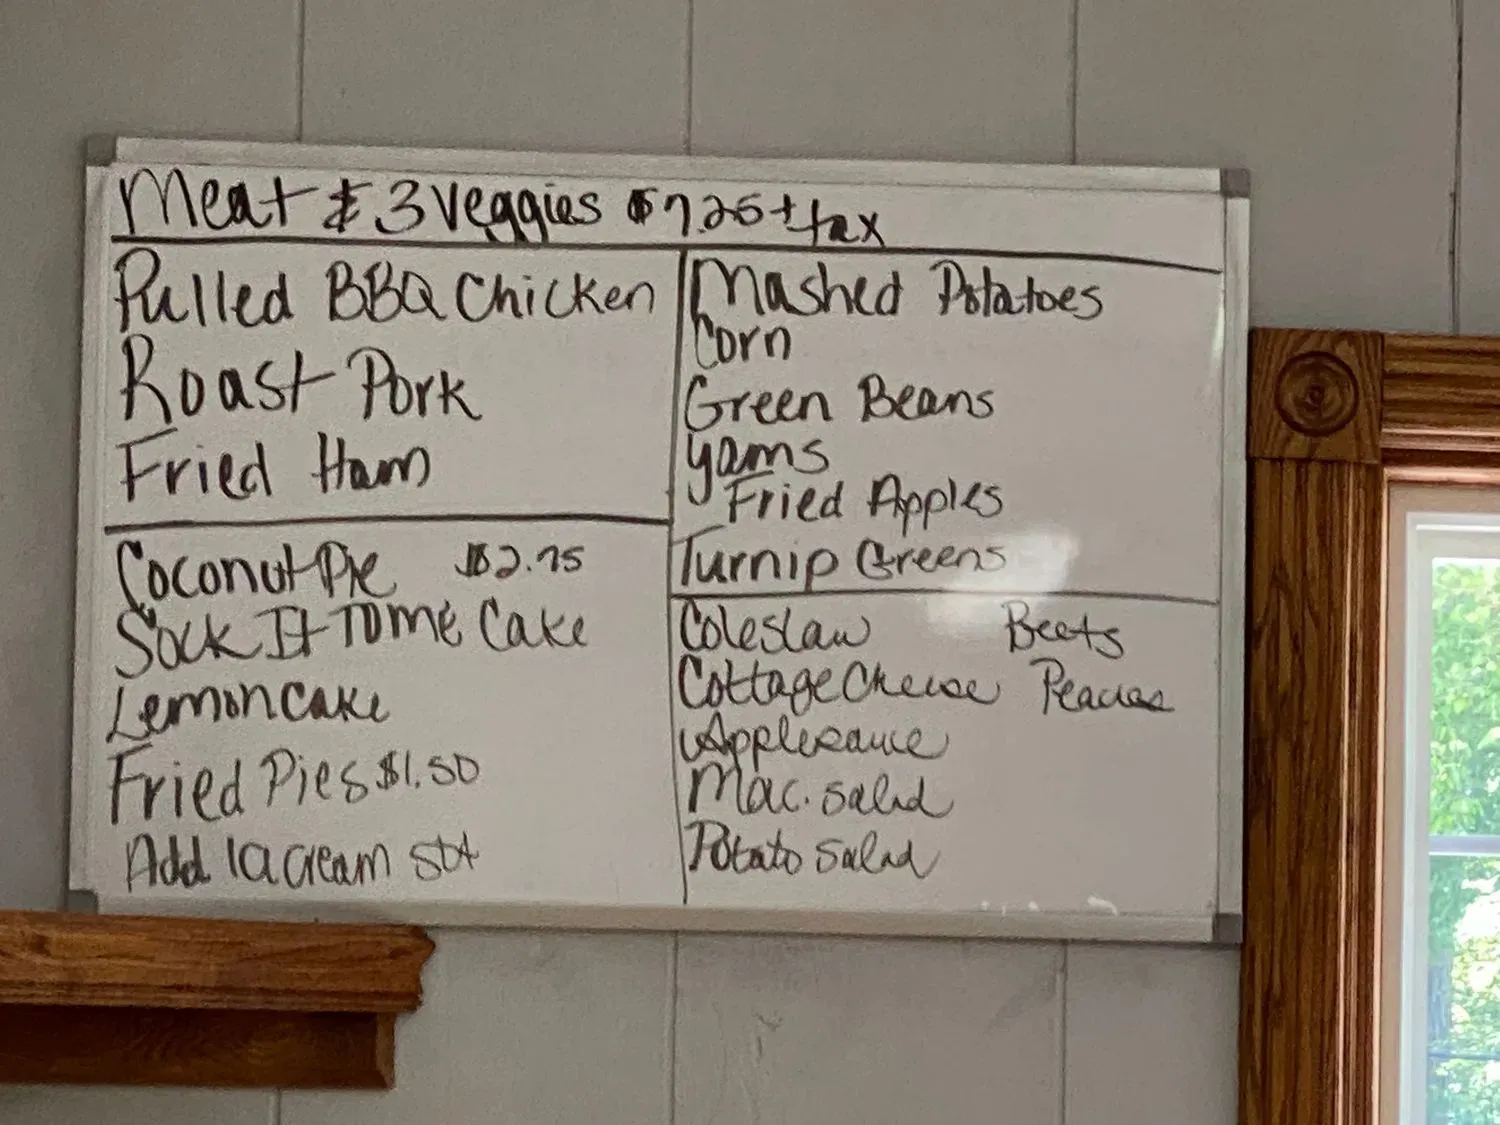 Meat & 3 Veggies $7.25 + tax
Pulled BBQ Chicken
Roast Pork
Fried Ham
Mashed Potatoes
Corn
Green Beans
Yams
Fried Apples
Turnip Greens
Coconut Pie $2.75
Sock It To Me Cake
Lemon Cake
Fried Pies $1.50
Add Ice Cream
Coleslaw Beets
Cottage Cheese Peaches
Applesauce
Mac. Salad
Potato Salad